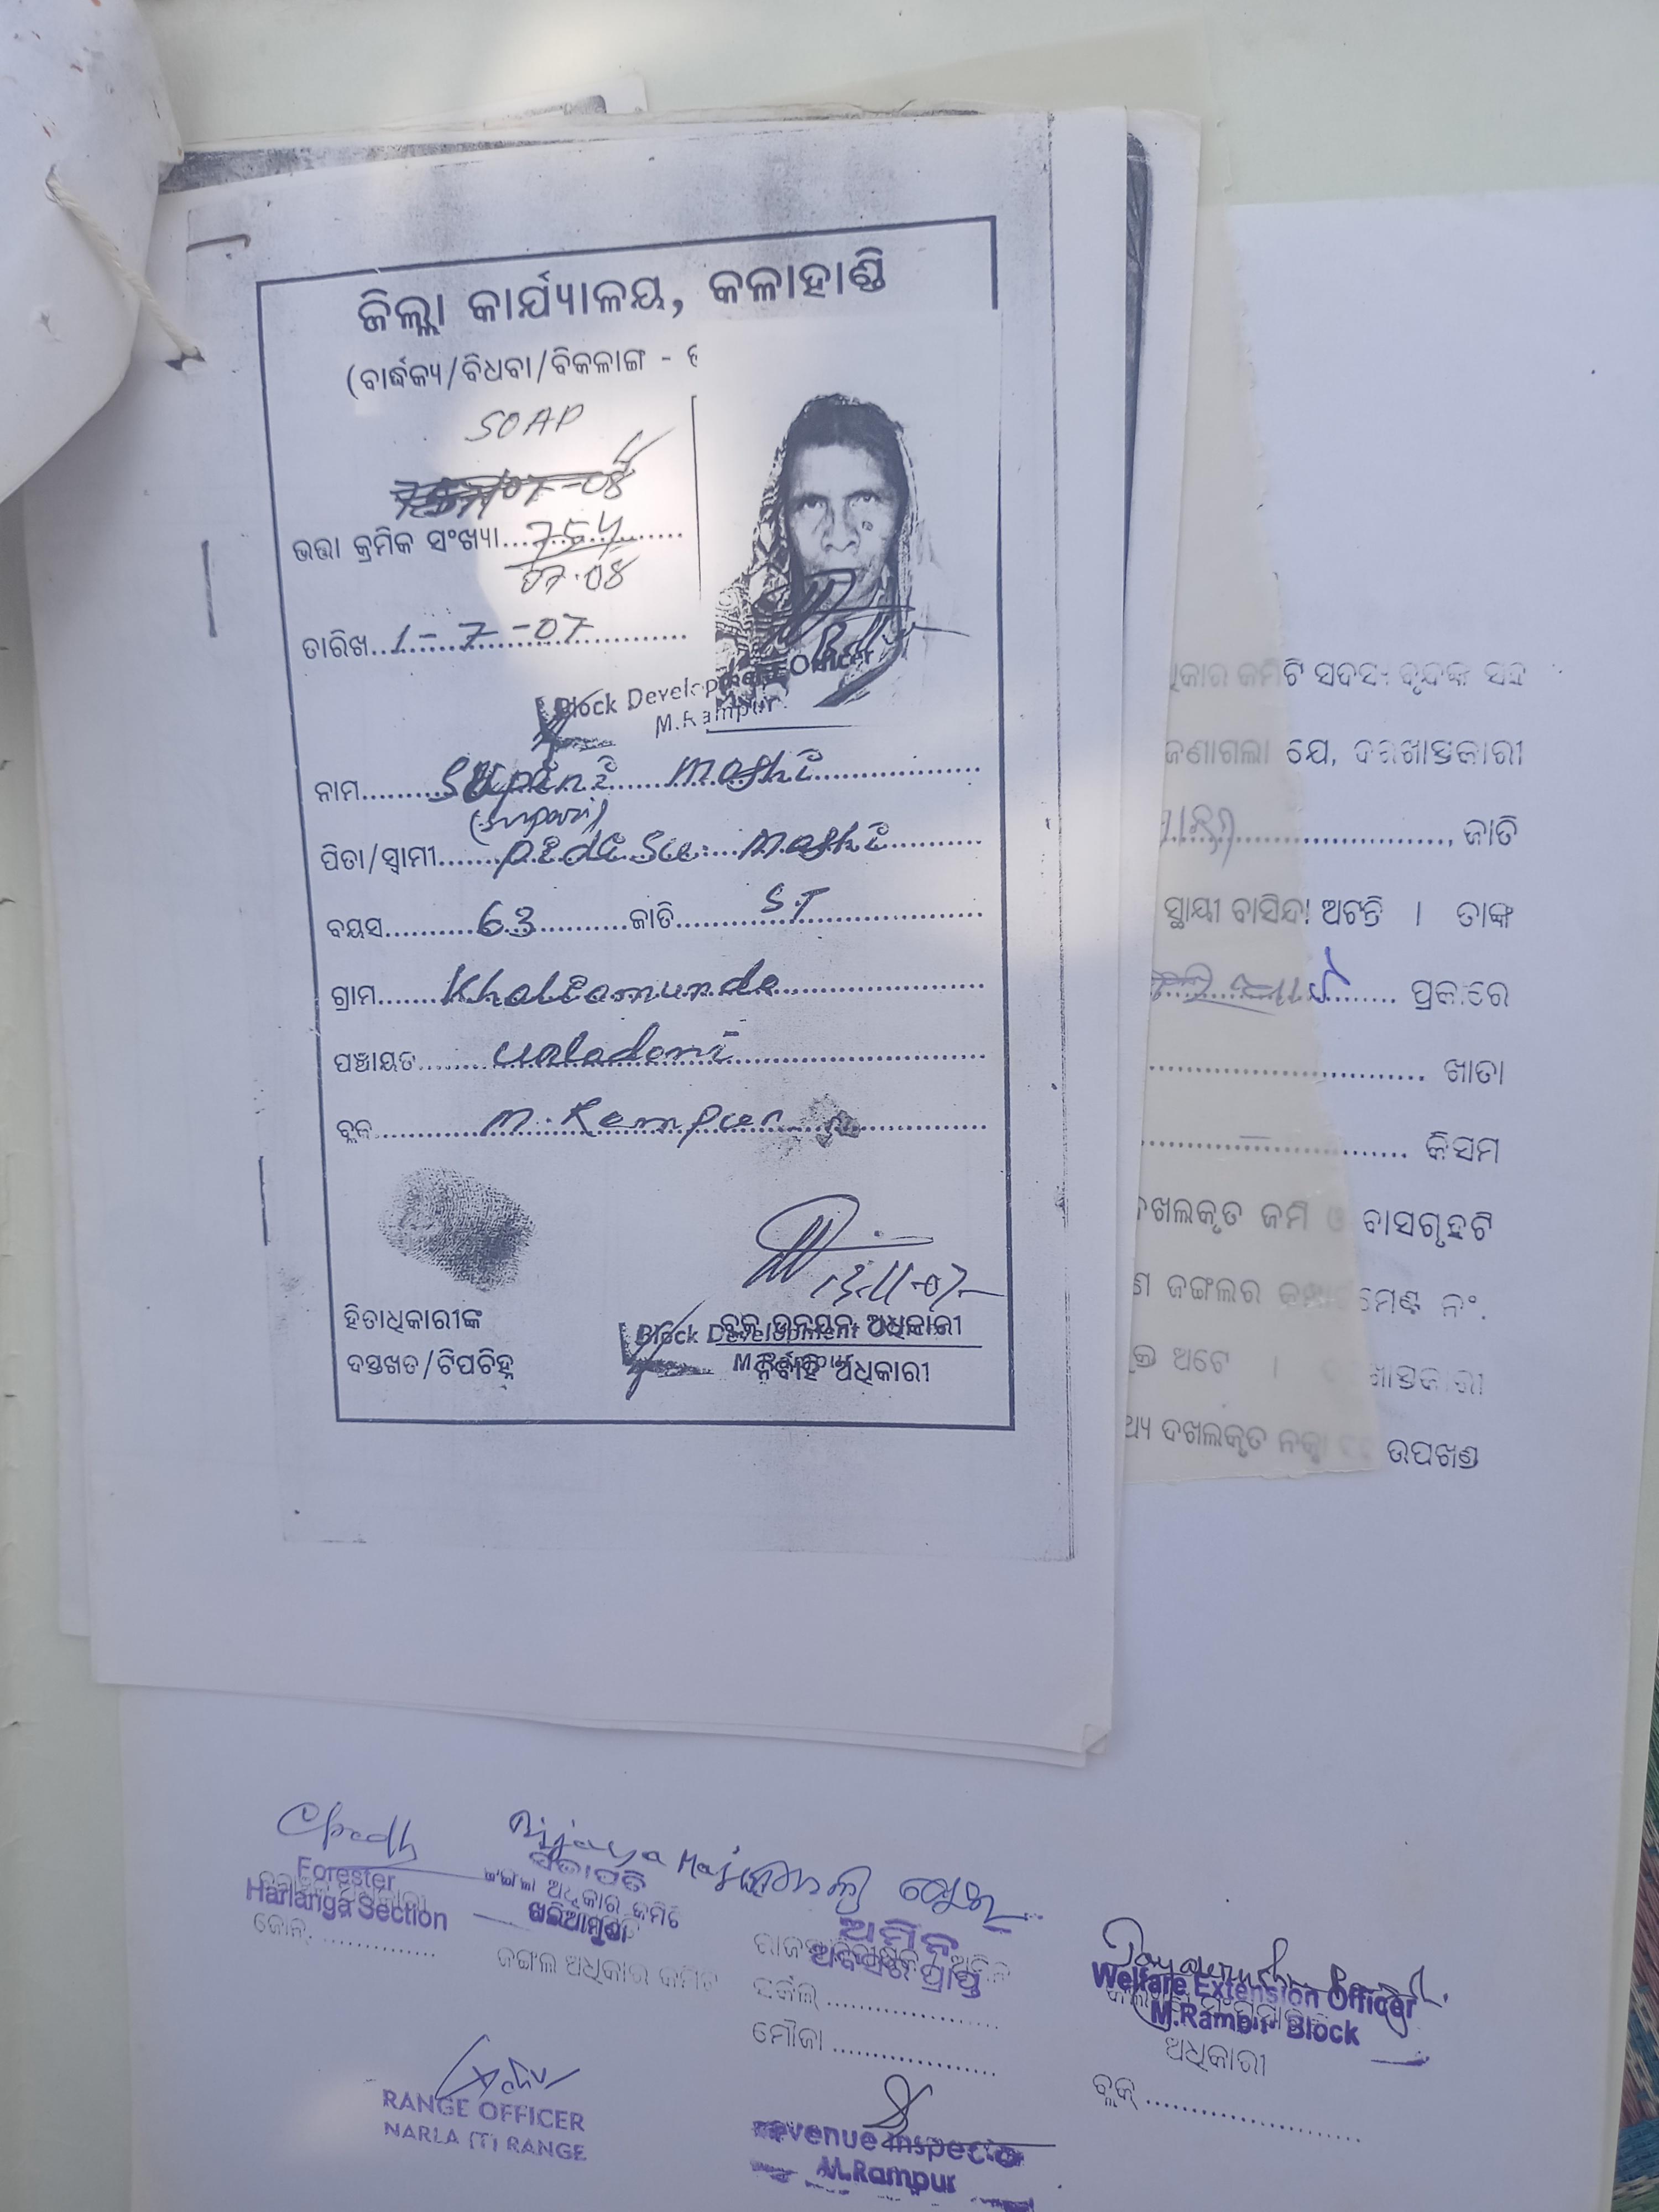 ଜିଲ୍ଲା କାର୍ଯ୍ୟାଳୟ, କଳାହାଣ୍ଡି
(ବାର୍ଦ୍ଧକ୍ୟ/ବିଧବା/ବିକଳାଙ୍ଗ -
SOAP
07-08
ଭତ୍ତା କ୍ରମିକ ସଂଖ୍ୟା.....754
07.08
ତାରିଖ...1-7-07
Block Development Officer
M.Rampur
ନାମ.........Supani Majhi
(Supari)
ପିତା/ସ୍ୱାମୀ.......Majhi
ବୟସ.........63.........ଜାତି.........ST
ଗ୍ରାମ......Khaliamunda
ପଞ୍ଚାୟତ.......
ବ୍ଲକ.........M. Rampur
13-11-07
ହିତାଧିକାରୀଙ୍କ
ଦସ୍ତଖତ/ଟିପଚିହ୍ନ
ବ୍ଲକ ଉନ୍ନୟନ ଅଧିକାରୀ
ନିର୍ବାହି ଅଧିକାରୀ
Block Development
M.Rampur
କମିଟି ସଦସ୍ୟ ବୃନ୍ଦଙ୍କ ସହ
ଜଣାଗଲା ଯେ, ଦରଖାସ୍ତକାରୀ
, ଜାତି
ସ୍ଥାୟୀ ବାସିନ୍ଦା ଅଟନ୍ତି । ତାଙ୍କ
ପ୍ରକାରେ
ଖାତା
କିସମ
ଦଖଲକୃତ ଜମି ଓ ବାସଗୃହଟି
ଜଙ୍ଗଲର ନଂ.
ଅଟେ ।
ଦଖଲକୃତ ନକ୍ସା ଉପଖଣ୍ଡ
Bijaya Majhi
Forester
Harlanga Section
ଜୋନ୍...............
ସଭାପତି
ଜଙ୍ଗଲ ଅଧିକାର କମିଟି
ଖଲିଆମୁଣ୍ଡା
ଜଙ୍ଗଲ ଅଧିକାର କମିଟି
ଅମିନ
ଅବସର ପ୍ରାପ୍ତ
ସର୍କଲ...............
ମୌଜା...............
Welfare Extension Officer
M.Rampur Block
ଅଧିକାରୀ
ବ୍ଲକ୍...............
RANGE OFFICER
NARLA (T) RANGE
Revenue Inspector
M.Rampur